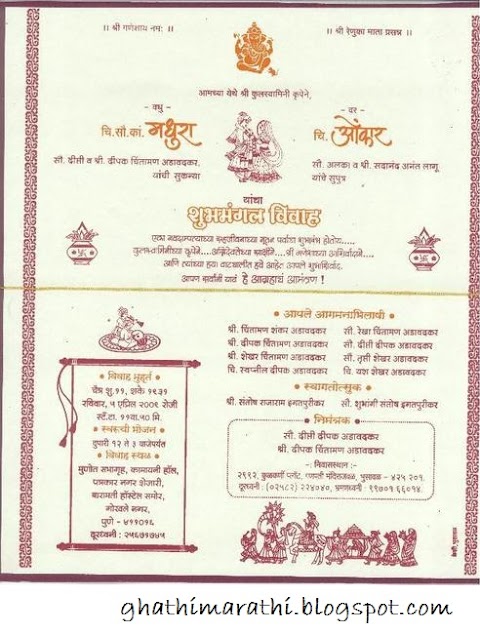 ।। श्री गणेशाय नमः ।।
।। श्री रेणुका माता प्रसन्न ।।
आमच्या येथे श्री कुलस्वामिनी कृपेने,
- वधु -
चि.सौ.कां. मधुरा
सौ. दीप्ती व श्री. दीपक चिंतामण अडावदकर,
यांची सुकन्या
- वर -
चि. ओंकार
सौ. अलका व श्री. सदानंद अनंत लागू
यांचे सुपुत्र
यांचा
शुभमंगल विवाह
एका नवदाम्पत्याच्या सहजीवनाच्या नूतन पर्वाचा शुभारंभ होतोय.....
कुलस्वामिनीच्या कृपेने....अग्निदेवतेच्या साक्षीने....श्री गणेशाच्या आशिर्वादाने....
आणि त्यांच्या ह्या वाटचालीत हवे आहेत आपले शुभाशिर्वाद.
आपण सर्वांनी यावं हे आग्रहाचं आमंत्रण !
• विवाह मुहूर्त •
चैत्र शु.११, शके १९३१
रविवार, ५ एप्रिल २००९ रोजी
स्टॅ.टा. ११वा.५० मि.
• स्वरूची भोजन •
दुपारी १२ ते ३ वाजेपर्यंत
• विवाह स्थळ •
मुणोत सभागृह, कामायनी हॉल,
पत्रकार नगर शेजारी,
बारामती हॉस्टेल समोर,
गोखले नगर,
पुणे - ४११०१६
दूरध्वनी : २५६७१७४५
• आपले आगमनाभिलाषी •
श्री. चिंतामण शंकर अडावदकर सौ. रेखा चिंतामण अडावदकर
श्री. दीपक चिंतामण अडावदकर सौ. दीप्ती दीपक अडावदकर
श्री. शेखर चिंतामण अडावदकर सौ. तृप्ती शेखर अडावदकर
चि. स्वप्नील दीपक अडावदकर चि. यश शेखर अडावदकर
• स्वागतोत्सुक •
श्री. संतोष राजाराम इमतपुरीकर सौ. शुभांगी संतोष इमतपुरीकर
• निमंत्रक •
सौ. दीप्ती दीपक अडावदकर
श्री. दीपक चिंतामण अडावदकर
-: निवासस्थान :-
२६९२, कुळकर्णी प्लॉट, गणपती मंदिराजवळ, भुसावळ - ४२५ २०१.
दूरध्वनी : (०२५८२) २२४०४०, भ्रमणध्वनी : ९९७०१ ६६०१४.
ghathimarathi.blogspot.com